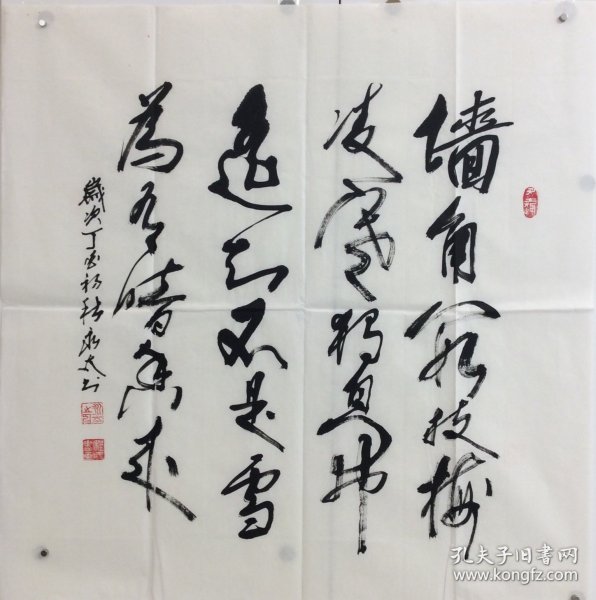 墙角数枝梅
凌寒獨自开
遥知不是雪
為有暗香来
歲次丁酉初秋
孔夫子旧书网
www.kongfz.com